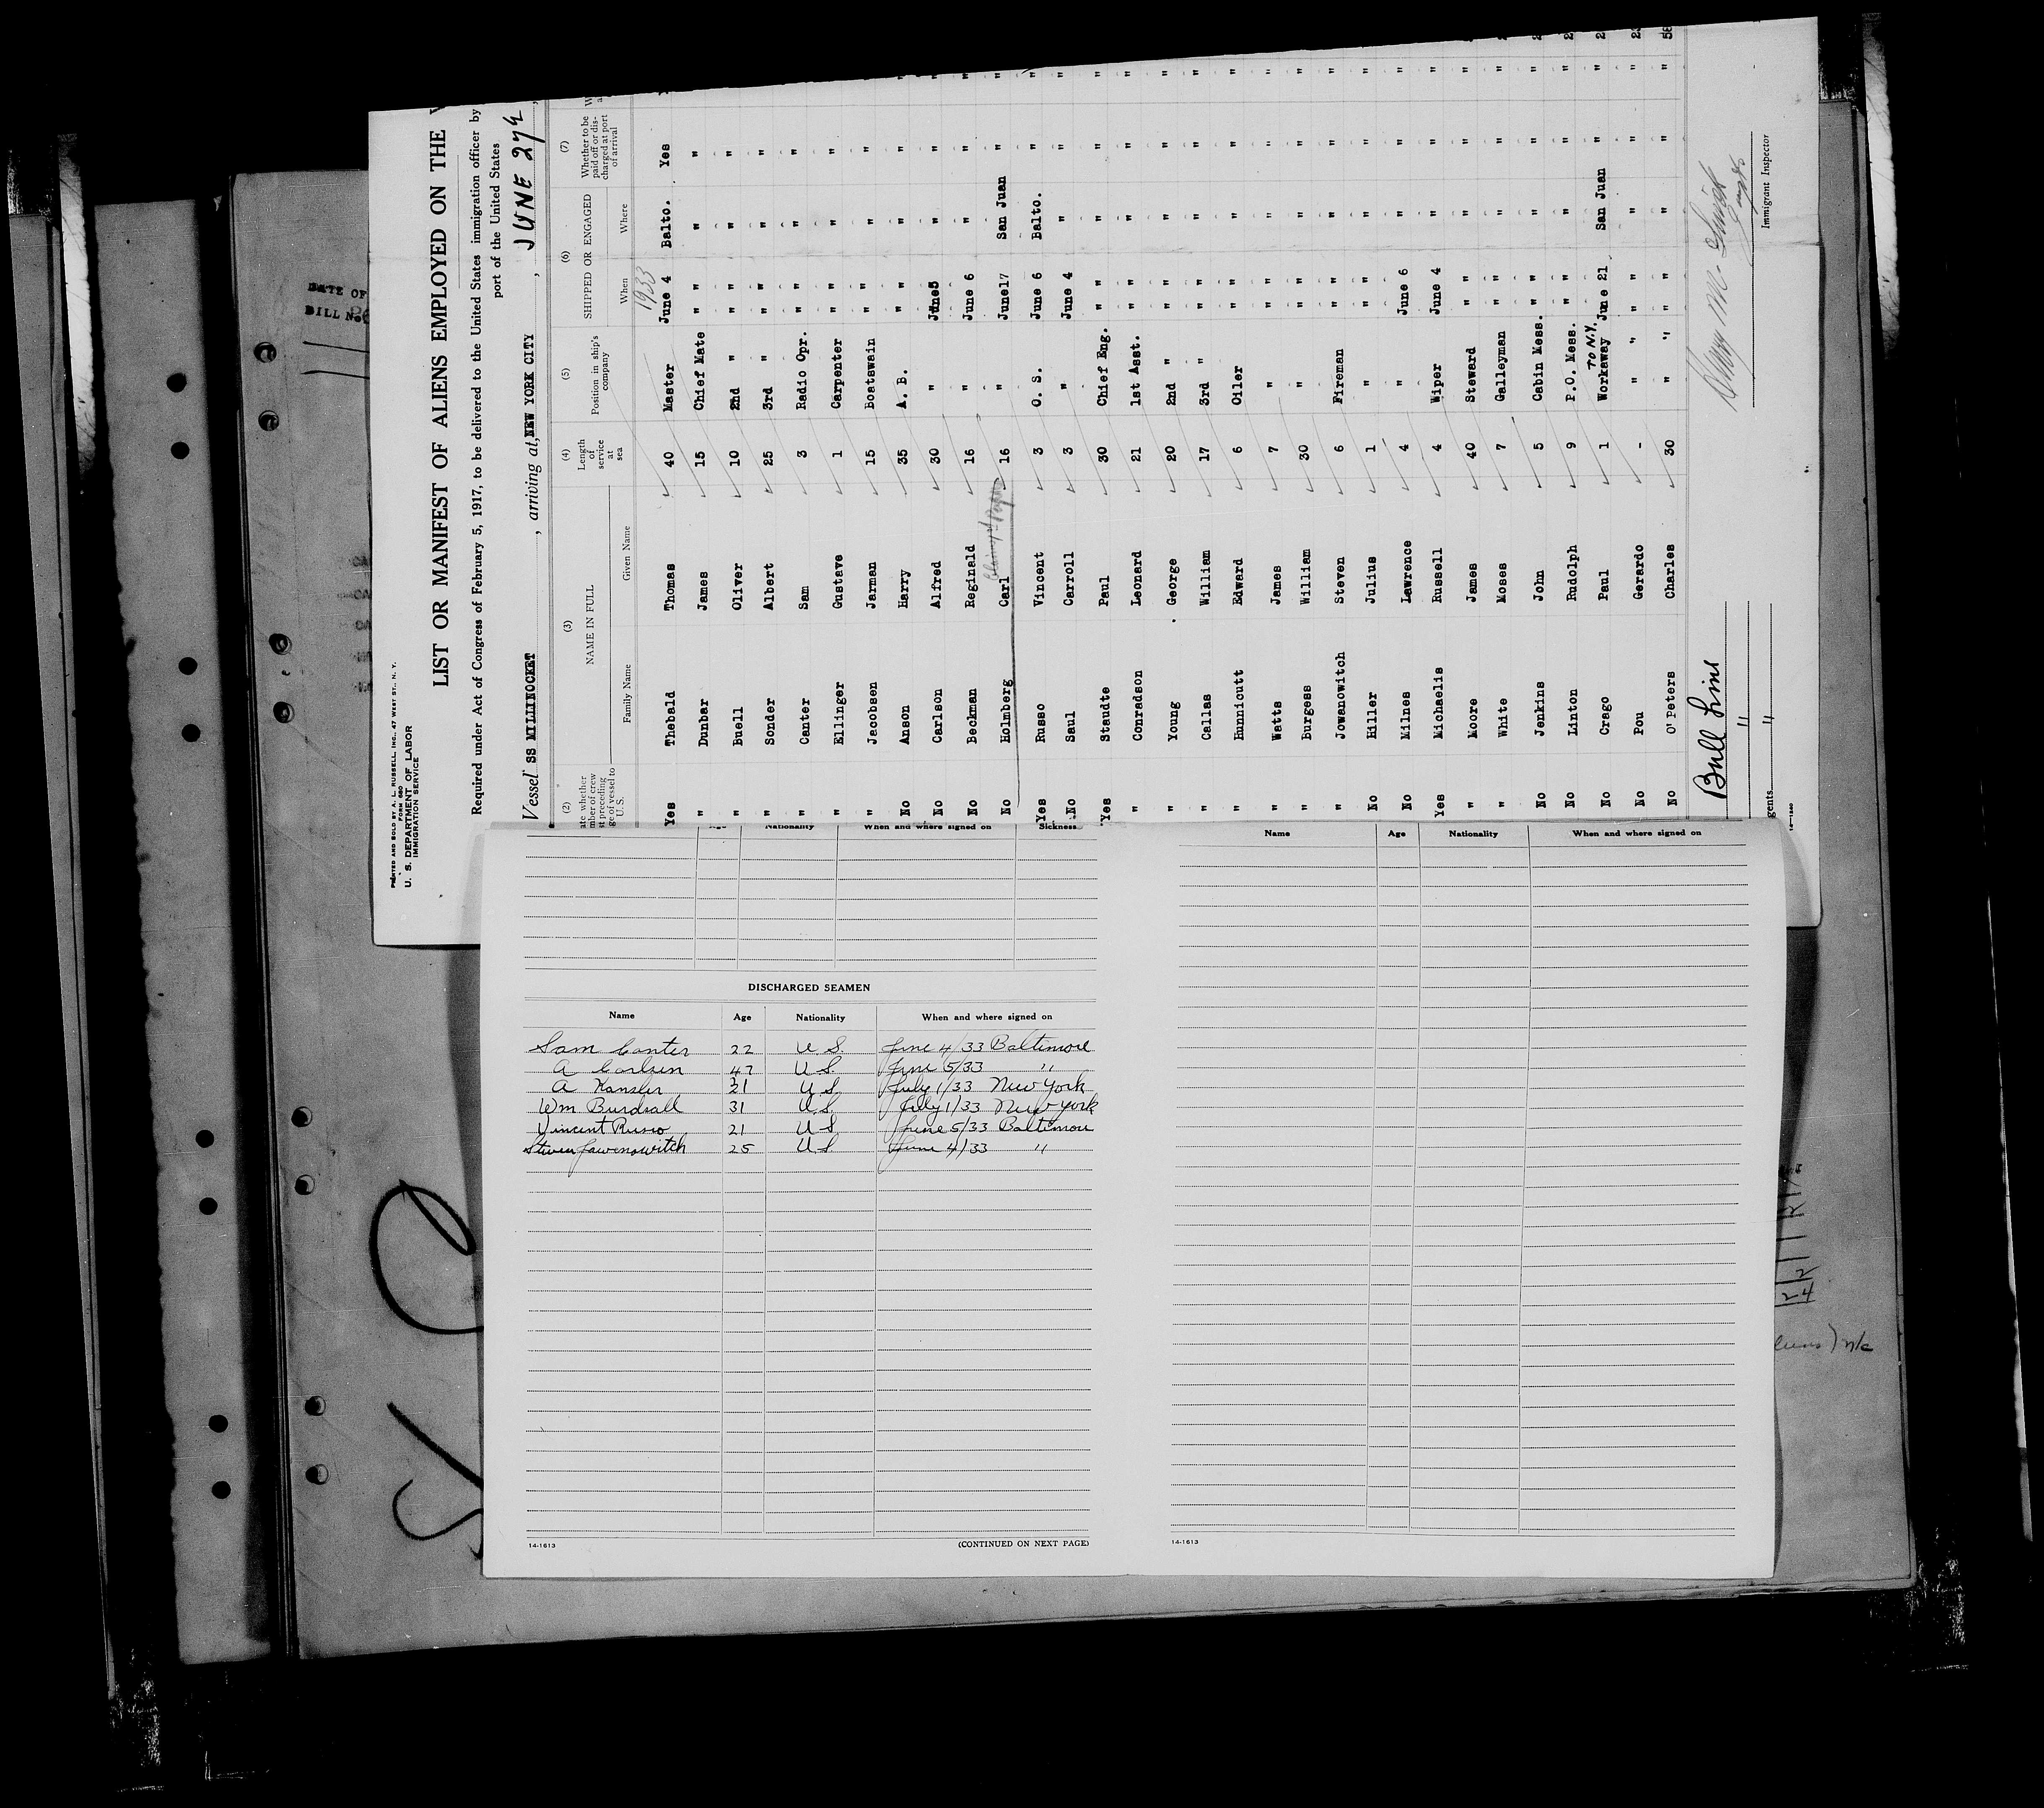 PRINTED AND SOLD BY A. L. RUSSELL, INC., 47 WEST ST., N. Y.
FORM 680
U. S. DEPARTMENT OF LABOR
IMMIGRATION SERVICE
LIST OR MANIFEST OF ALIENS EMPLOYED ON THE
Required under Act of Congress of February 5, 1917, to be delivered to the United States immigration officer by
port of the United States
Vessel SS MILLINOCKET, arriving at, NEW YORK CITY, JUNE 27th
(2) (3) (4) (5) (6) (7)
NAME IN FULL Length of service at sea Position in ship's company SHIPPED OR ENGAGED Whether to be paid off or discharged at port of arrival
Family Name Given Name When Where
1933
Yes Thebald Thomas 40 Master June 4 Balto. Yes
" Dunbar James 15 Chief Mate " " " "
" Buell Oliver 10 2nd " " " " "
" Sonder Albert 25 3rd " " " " "
" Canter Sam 3 Radio Opr. " " " "
" Ellinger Gustave 1 Carpenter " " " "
" Jacobsen Jarman 15 Boatswain " " " "
No Anson Harry 35 A. B. " " " " "
No Carlson Alfred 30 " June5 " " "
No Beckman Reginald 16 " June 6 " " "
No Holmberg Carl 16 " June17 San Juan " "
Yes Russo Vincent 3 O. S. June 6 Balto. " "
No Saul Carroll 3 " June 4 " " "
Yes Staudte Paul 30 Chief Eng. " " " " "
" Conradson Leonard 21 1st Asst. " " " " "
" Young George 20 2nd " " " " " "
" Callas William 17 3rd " " " " " "
" Hunnicutt Edward 6 Oiler " " " " "
" Watts James 7 " " " " " "
" Burgess William 30 " " " " " "
" Jowanowitch Steven 6 Fireman " " " " "
No Hiller Julius 1 " " " " " "
No Milnes Lawrence 4 " June 6 " " "
Yes Michaelis Russell 4 Wiper June 4 " " "
" Moore James 40 Steward " " " " "
" White Moses 7 Galleyman " " " " "
No Jenkins John 5 Cabin Mess. " " " " "
No Linton Rudolph 9 P.O. Mess. " " " " "
TO N.Y.
No Crago Paul 1 Workaway June 21 San Juan " "
No Pou Gerardo - " " " " " "
No O'Peters Charles 30 " " " " " "
Bull Line
" "
Immigrant Inspector
14-1240
DATE OF
BILL No.
Nationality When and where signed on Sickness
DISCHARGED SEAMEN
Name Age Nationality When and where signed on
Sam Canter 22 U.S. June 4/33 Baltimore
A Carlsen 47 U.S. June 5/33 "
A Kansler 21 U.S. July 1/33 New York
Wm Burdsall 31 U.S. July 1/33 New York
Vincent Russo 21 U.S. June 5/33 Baltimore
Steven Jowenowitch 25 U.S. June 4/33 "
14-1613
(CONTINUED ON NEXT PAGE)
Name Age Nationality When and where signed on
14-1613